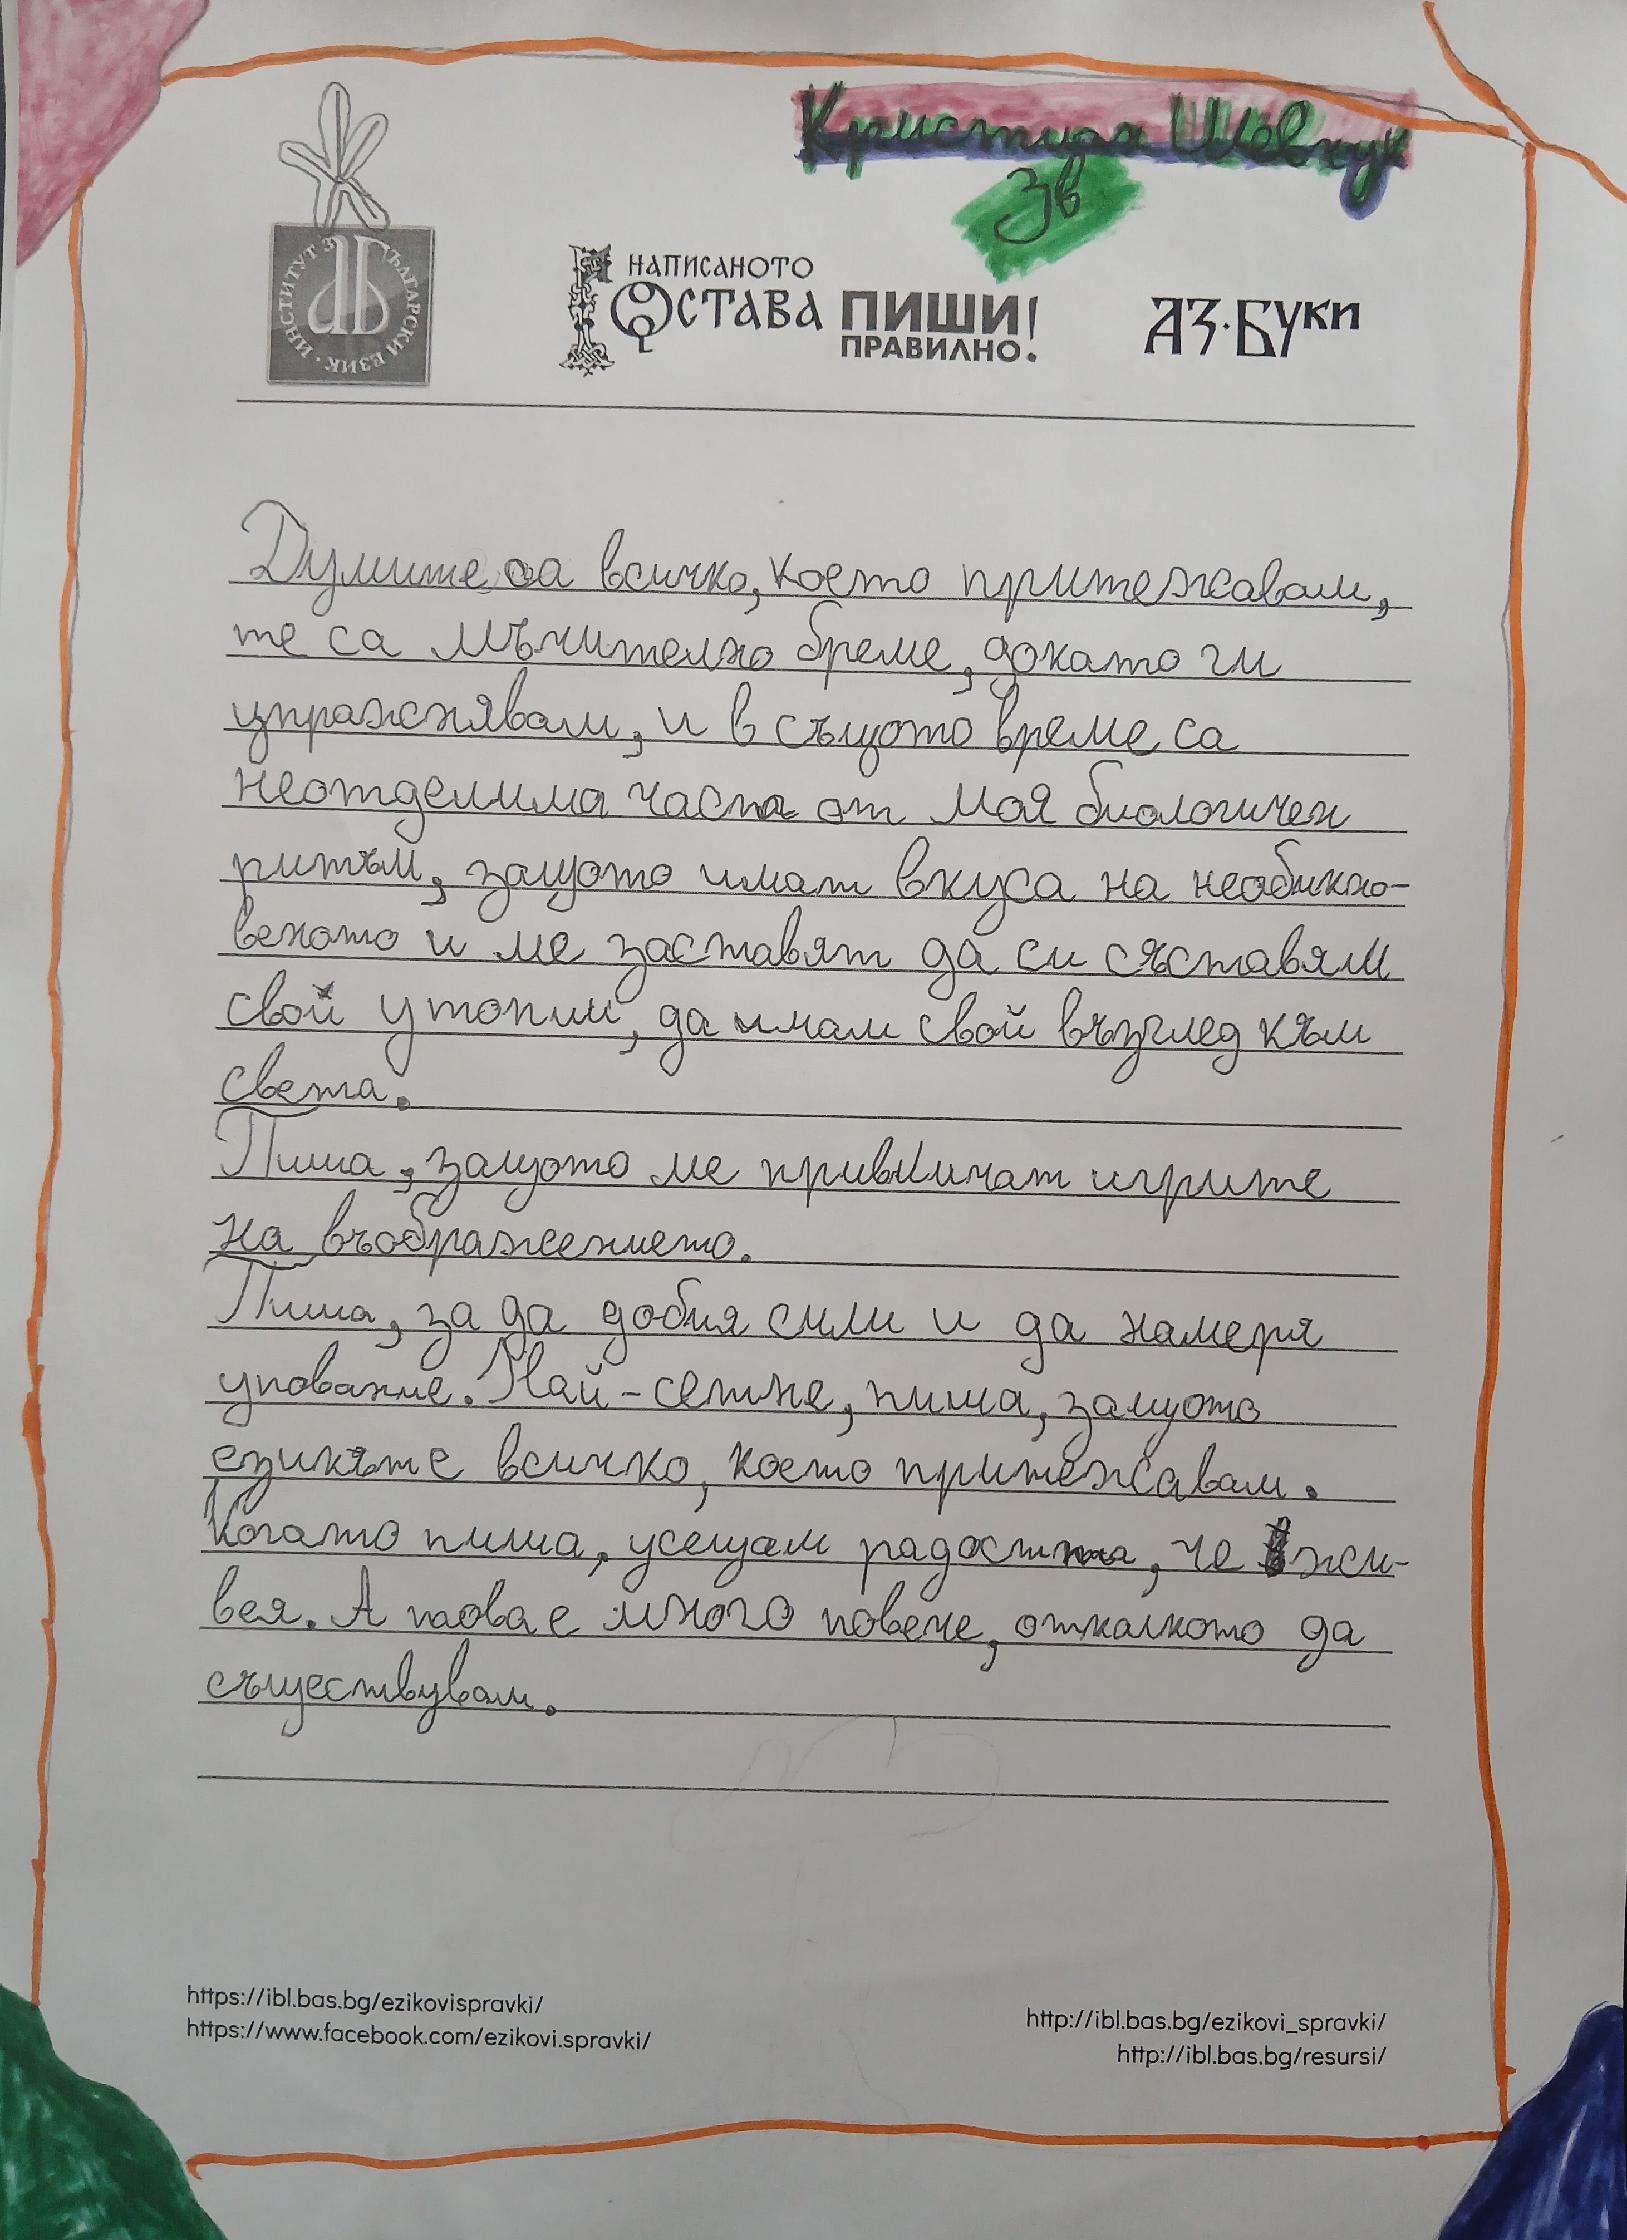 Кристиян Шевчук
3в
ИНСТИТУТ ЗА БЪЛГАРСКИ ЕЗИК
НАПИСАНОТО
ОСТАВА ПИШИ!
ПРАВИЛНО!
АЗ·БУКИ
Думите са всичко, което притежавам,
те са мъчително бреме, докато ги
упражнявам, и в същото време са
неотделима част от моя биологичен
ритъм, защото имат вкуса на необикно-
веното и ме заставят да си съставям
свой утопии, да имам свой възглед към
света.
Пиша, защото ме привличат игрите
на въображението.
Пиша, за да добия сили и да намеря
упование. Най-сетне, пиша, защото
езикът е всичко, което притежавам.
Когато пиша, усещам радостта, че жи-
вея. А това е много повече, отколкото да
съществувам.
https://ibl.bas.bg/ezikovispravki/
https://www.facebook.com/ezikovi.spravki/
http://ibl.bas.bg/ezikovi_spravki/
http://ibl.bas.bg/resursi/